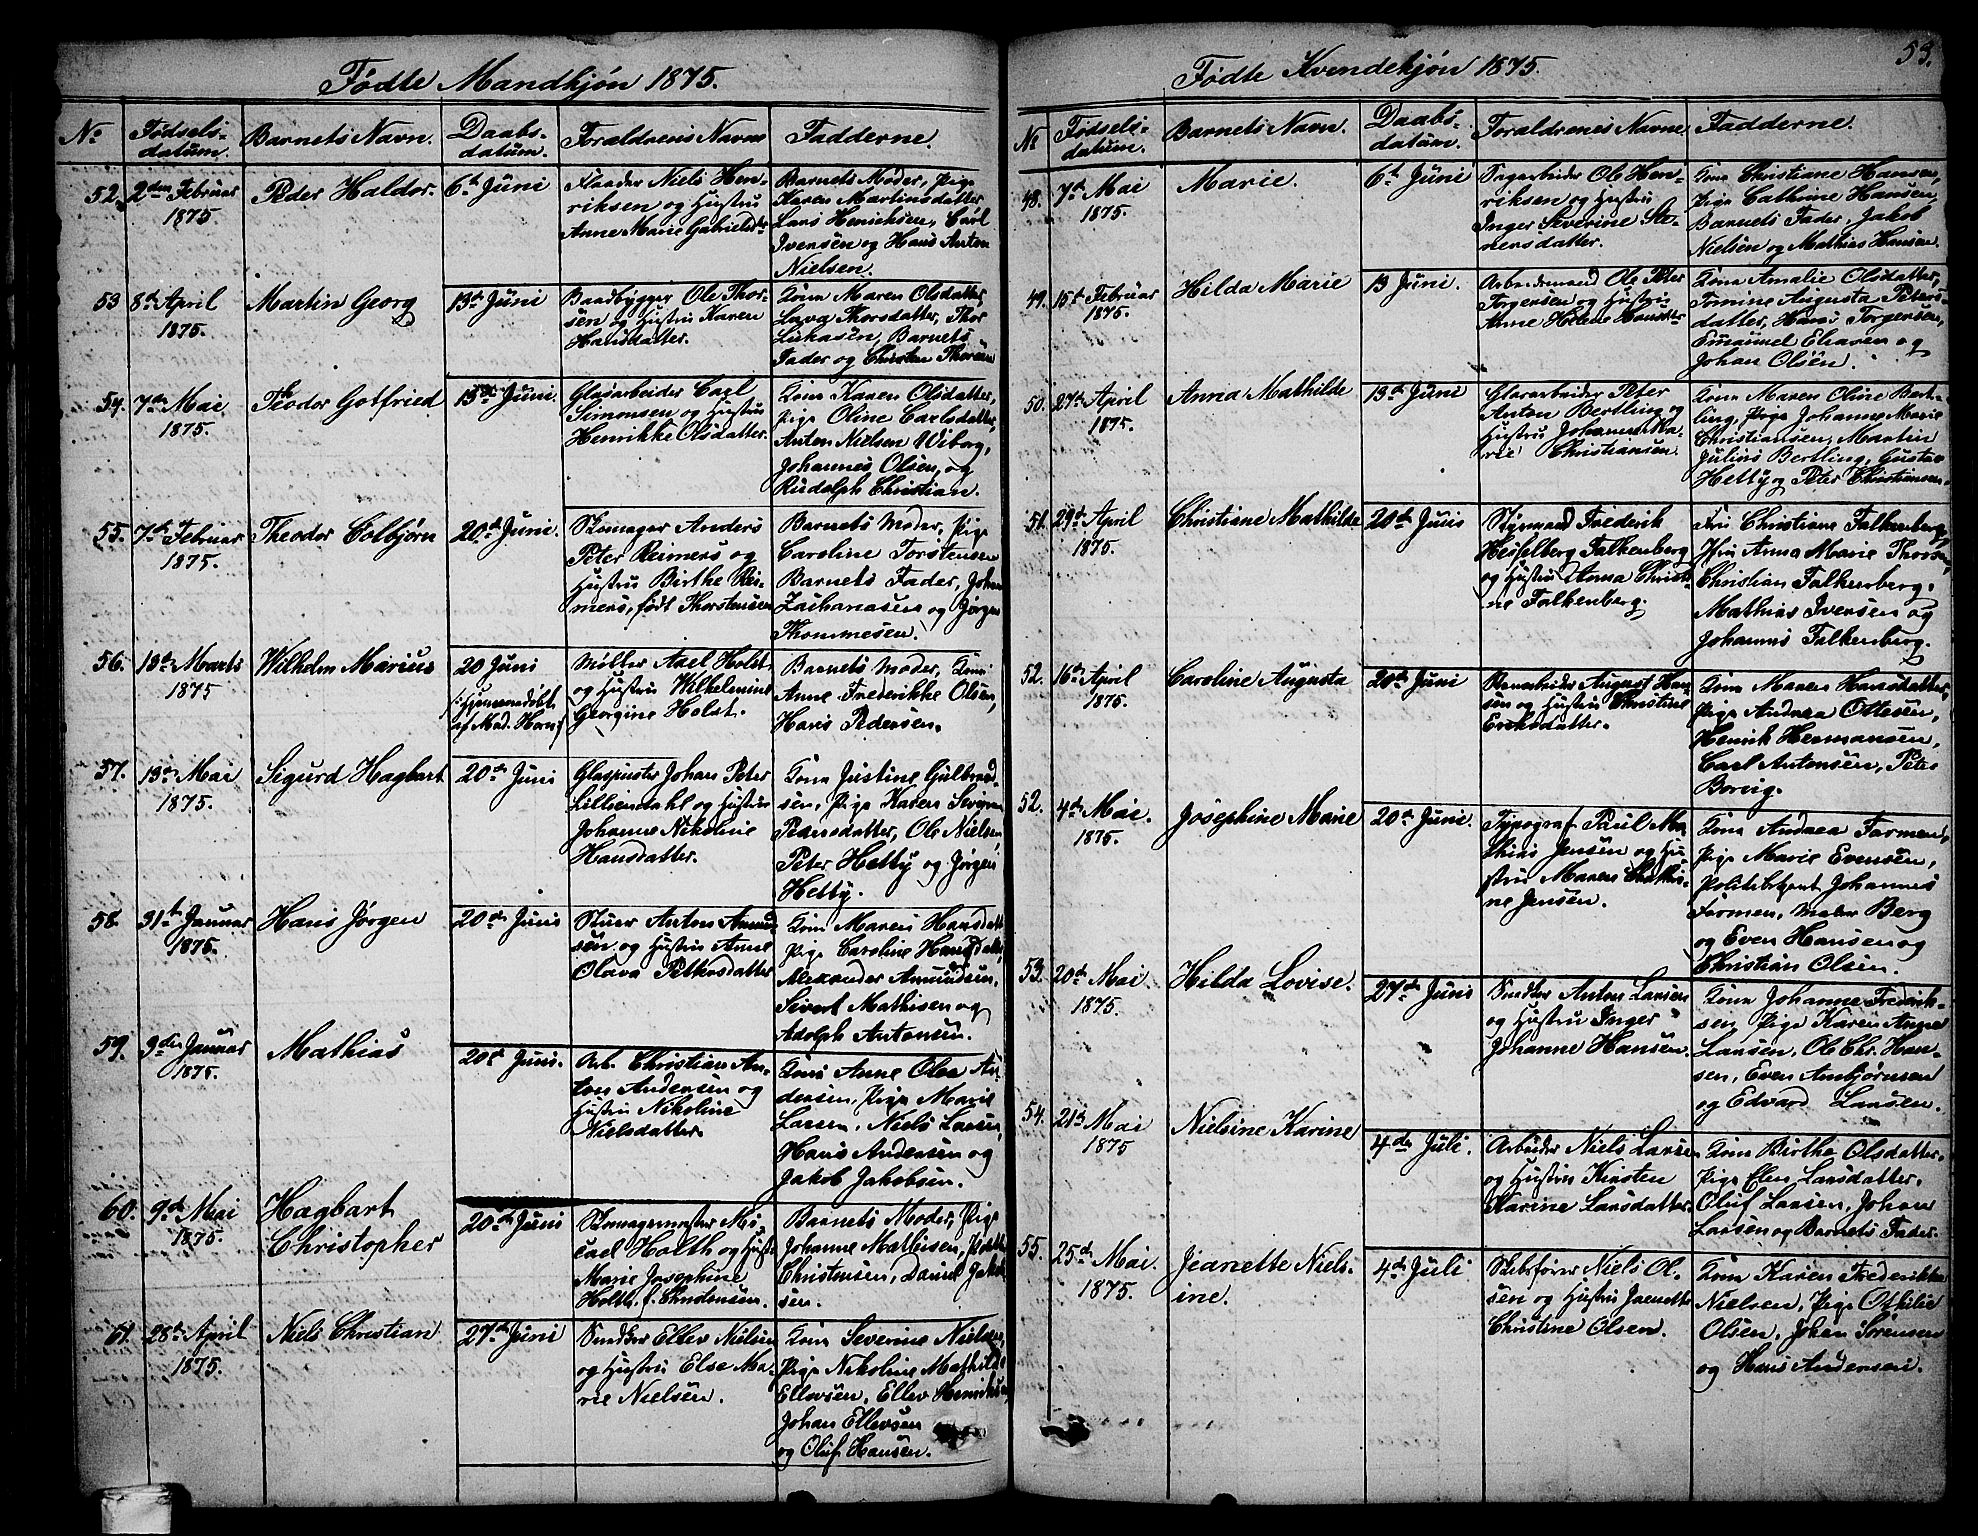 Fødte Mandkjøn 1875.
No
Fødsels-
datum.
Barnets Navn.
Daabs-
datum.
Forældrenes Navne
Fadderne.
52.
2den Februar
1875
Peder Haldor.
6te Juni
Niels Hen-
riksen og Hustru
Anne Marie Gabrielsdtr
Barnets Moder, Pige
Karen Martinsdatter
Lars Henriksen, Carl
Iversen og Hans Anton
Nielsen.
53
8de April
1875.
Martin Georg
13de Juni
Baadbygger Ole Thor-
sen og Hustru Karen
Hansdatter.
Kona Maren Olsdatter,
Lava Thorsdatter, Thor
Lukasen, Barnets
Fader og Christen Thorsen
54.
7de Mai
1875.
Theodor Gotfried
13de Juni.
Glasarbeider Carl
Simonsen og Hustru
Henrikke Olsdatter.
Kona Karen Olsdatter,
Pige Oline Carlsdatter,
Anton Nielsen Wiborg,
Johannes Olsen, og
Rudolph Christian.
55.
7de Februar
1875.
Theodor Colbjørn
20de Juni.
Skomager Anders
Peter Reimers og
Hustru Birthe Rei-
mers, født Thorstensen
Barnets Moder, Pige
Caroline Torstensen
Barnets Fader, Johan
Zachariasen og Jørgen
Thommesen.
56.
18de Marts
1875
Wilhelm Marius
20 Juni
/: Hjemmedøbt
af Mad. Horn:/
Møller Axel Holst
og Hustru Wilhelmine
Georgine Holst.
Barnets Moder, Kona
Anne Frederikke Olsen,
Hans Pedersen.
57.
13de Mai
1875.
Sigurd Hagbart
20de Juni
Glaspuster Johan Peter
Lilliendahl og Hustru
Johanne Nikoline
Hansdatter.
Kona Justine Gulbrand-
sen, Pige Karen
Hansdatter, Ole Nielsen,
Peter Hetty og Jørgen
Hetty.
58.
31te Januar
1875.
Hans Jørgen
20de Juni
Stuer Anton Amund-
sen og Hustru Anne
Olava Pettersdatter
Kona Maren Hansdatt.
Pige Caroline Hansdatter,
Alexander Amundsen,
Sivert Mathisen og
Adolph Antonsen.
59.
9de Januar
1875.
Mathias
20de Juni.
Arb. Christian An-
ton Andersen og
Hustru Nikoline
Nielsdatter.
Kona Anne Olea An-
dersen, Pige Marie
Larsen, Niels Larsen,
Hans Andersen og
Jakob Jakobsen.
60.
9de Mai
1875.
Hagbart
Christopher
20de Juni
Skomagermester Mi-
cael Holth og Hustru
Marie Josephine
Holth f. Christensen.
Barnets Moder, Pige
Johanne Mathisen,
Christensen, Daniel Jakob-
sen.
61.
28de April
1875.
Niels Christian
27de Juni
Snedker Ellev Nielsen
og Hustru Else Ma-
rie Nielsen.
Kona Severine Nielsen,
Pige Nikoline Mathilde
Ellevsen, Ellev Henriksen,
Johan Ellevsen
og Oluf Hansen.
Fødte Kvindekjøn 1875.
53.
No
Fødsels-
datum.
Barnets Navn.
Daabs-
datum.
Forældrenes Navne
Fadderne.
48.
7de Mai
1875.
Marie.
6te Juni
Sagarbeider Ole Hen-
riksen og Hustru
Inger Severine Ste-
nersdatter.
Kona Christiane Hansen,
Pige Cathrine Hansen
Barnets Fader, Jakob
Nielsen og Mathias Hansen.
49.
15de Februar
1875.
Hilda Marie
13 Juni.
Arbeidsmand Ole Peter
Jørgensen og Hustru
Anne Helene Hansdtr
Kona Amalie Olsdatter,
Tomine Augusta Peters-
datter, Hans Jørgensen,
Emanuel Eliasen og
Johan Olsen.
50.
27de April
1875.
Anna Mathilde
13de Juni
Glasarbeider Peter
Anton Bertling og
Hustru Johanne Ma-
rie Christiansen
Kona Maren Oline Bert-
ling, Pige Johanne Marie
Christiansen, Martin
Julius Bertling, Gustav
Hetty og Peter Christiansen.
51.
29de April
1875.
Christiane Mathilde
20de Juni
Styrmand Frederik
Hesselberg Falkenberg
og Hustru Anna Christi-
ne Falkenberg.
Fru Christiane Falkenberg,
Jfru Anna Marie Thorsen,
Christian Falkenberg.
Mathias Iversen og
Johannes Falkenberg.
52.
16de April
1875.
Caroline Augusta
20de Juni
Stenarbeider August Han-
sen og Hustru Christine
Eriksdatter.
Kona Maren Hansdatter,
Pige Andrea Ottesen,
Henrik Hermansen,
Carl Antonsen, Peter
Borvig.
52.
4de Mai.
1875.
Josephine Marie
20de Juni.
Typograf Paul Ma-
thias Jensen og Hu-
stru Maren Mathi-
ne Jensen.
Kona Andrea Formen,
Pige Marie Evensen,
Politibetjent Johannes
Formen, Maler Berg
og Even Hansen og
Christian Olsen.
53.
20de Mai
1875.
Hilda Lovise.
27de Juni
Snedker Anton Larsen
og Hustru Inger
Johanne Hansen.
Kona Johanne Fredrik-
sen, Pige Karen Anne
Larsen, Ole Chr. Han-
sen, Even Ambjørnsen
og Edvard Larsen.
54.
21de Mai
1875
Nielsine Karine
4de Juli.
Arbeider Niels Larsen
og Hustru Kirsten
Karine Larsdatter.
Kona Birthe Olsdatter.
Pige Elen Larsdatter.
Oluf Larsen, Johan
Larsen og Barnets Fader.
55.
25de Mai.
1875.
Jeanette Niels-
ine.
4de Juli
Skibsfører Niels Ol-
sen og Hustru Jeanette
Christine Olsen.
Kona Karen Frederikke
Nielsen, Pige Othilie
Olsen, Johan Sørensen
og Hans Andersen.